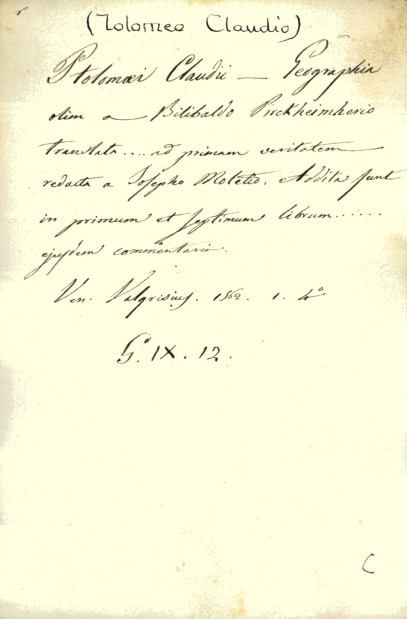 (Tolomeo Claudio)
Ptolomæi Claudii — Geographia
olim a Bilibaldo Pirckheimherio
translata .... ad primam veritatem
redacta a Josepho Moletio. Addita sunt
in primum et septimum librum ......
ejusdem commentaria.
Ven. Valgrisius. 1562. 1. 4°
G. IX. 12.
C